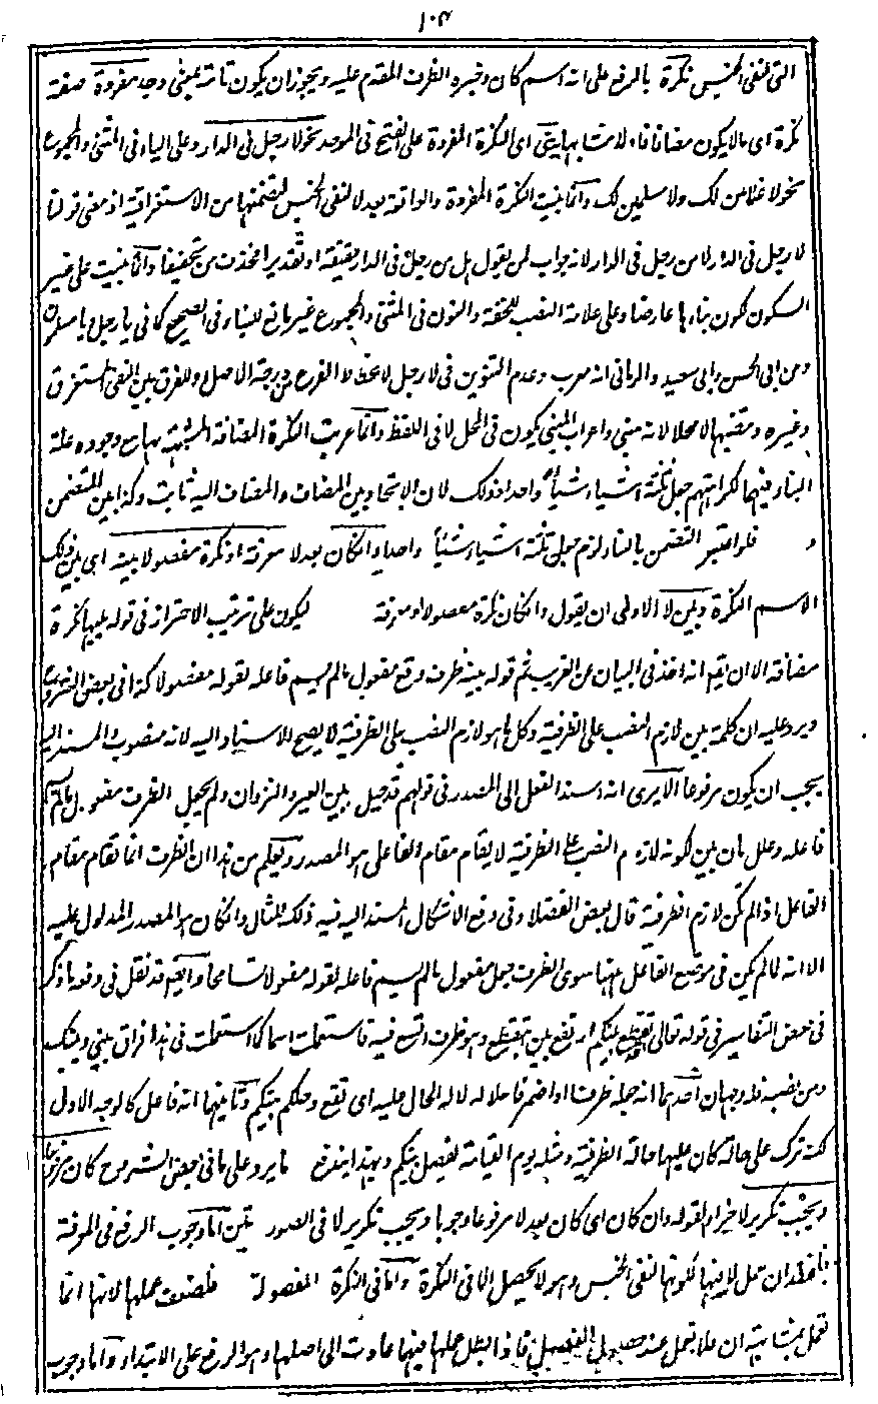 ١٠٣
التى لنفى الجنس نكرة بالرفع على انه اسم كان وخبره الظرف المقدم عليه ويجوز ان يكون تامة بمعنى وجد مفردة صفة
نكرة اى ما لا يكون مضافا ولا مشابها يبنى اى النكرة المفردة على الفتح فى الموحد نحو لا رجل فى الدار وعلى الياء فى المثنى والمجموع
نحو لا غلامين لك ولا مسلمين لك وانما بنيت النكرة المفردة والواقعة بعد لا لنفى الجنس لتضمنها من الاستغراقية اذ معنى قولنا
لا رجل فى الدار لا من رجل فى الدار لانه جواب لمن يقول هل من رجل فى الدار حقيقة او تقديرا فحذفت من تخفيفا وانما بنيت على غير
السكون لكون بناءها عارضا وعلى علامة النصب للخفة والنون فى المثنى والمجموع غير مانع للبناء وفى الصحيح كما فى يا رجل ويا مسلمون
ومن ابى الحسن وابى سعيد والرمانى انه معرب وعدم التنوين فى لا رجل لانحطاط الفرع من درجة الاصل وللفرق بين النفى المستغرق
وغيره لا محلا لانه مبنى واعراب المبنى يكون فى المحل لا فى اللفظ وانما اعربت النكرة المضافة المشبهة بها مع وجود علة
البناء فيها لكراهتهم جعل ثلثة اشياء شيئا واحدا وذلك لان الاتحاد بين المضاف والمضاف اليه ثابت وكذا بين المتضمن
فلو اعتبر التضمن بالبناء لزم جعل ثلثة اشياء شيئا واحدا وان كان بعد لا معرفة او نكرة مفصولا بينه اى بين ذلك
الاسم النكرة وبين لا الاولى ان يقول وان كان نكرة مفصولا او معرفة ليكون على ترتيب الاحتراز فى قوله يليها نكرة
مضافة الا ان يقم انه اخذ فى البيان من القريب ثم قوله بينه ظرف وقع مفعول ما لم يسم فاعله لقوله مفصولا كذا فى بعض الشروح
ويرد عليه ان كلمة بين لازم النصب على الظرفية وكل ما هو لازم النصب على الظرفية لا يصح الاسناد اليه لانه منصوب والمسند اليه
يجب ان يكون مرفوعا الا يرى انه اسند الفعل الى المصدر فى قولهم قد حيل بين العير والنزوان ولم يجعل الظرف مفعول ما لم يسم
فاعله وعلل بان بين لكونه لازم النصب على الظرفية لا يقام مقام الفاعل هو المصدر ويعلم من هذا ان الظرف انما تقام مقام
الفاعل اذا لم تكن لازم الظرفية قال بعض الفضلاء وفى دفع الاشكال المسند اليه فيه ذلك المثال وان كان هو المصدر المدلول عليه
الا انه لما لم يكن فى موضع الفاعل ههنا سوى الظرف جعل مفعول ما لم يسم فاعله لقوله مفعولا تسامحا وايضا قد نقل فى دفعه ما ذكر
فى بعض التفاسير فى قوله تعالى تقطع بينكم ارتفع بين بتقطع وهو ظرف اتسع فيه فاستعملت اسما كما استعملت فى هذا فراق بينى وبينك
ومن نصبه فله وجهان احدهما انه جعله ظرفا واضمر فاعلا لدلالة الحال عليه اى تقطع وصلكم بينكم وثانيهما انه فاعل كالوجه الاول
لكنه ترك على حالة كان عليها حالة الظرفية ومثله يوم القيامة يفصل بينكم وبهذا يندفع ما يرد على ما فى بعض الشروح كان مرفوعا
ويجب تكرير لا خبر لقوله وان كان اى كان بعد لا مرفوعا وجوبا ويجب تكرير لا فى الصور تين اما وجوب الرفع فى المعرفة
لا فيها لكونها لنفى الجنس وهو لا يحصل الا فى النكرة واما فى النكرة المفصولة فلضعف عملها لانها انما
تعمل بمشابهة ان فلا تعمل عند حصول الفصل فاذا بطل عملها فيها عادت الى اصلها وهو الرفع على الابتداء واما وجوب